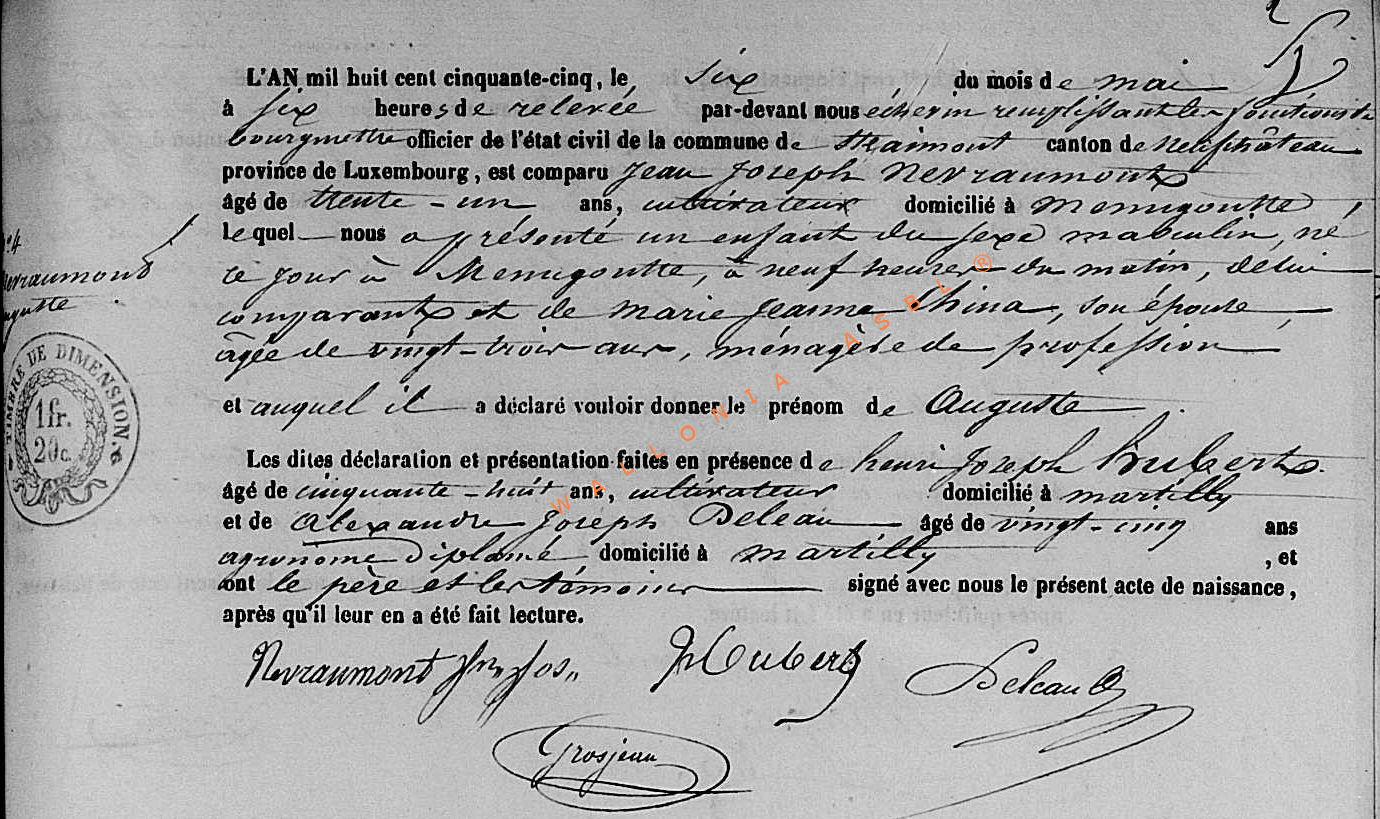 L'AN mil huit cent cinquante-cinq, le six du mois de mai
à six heures de relevée par-devant nous échevin remplissant les fonctions de
bourgmestre officier de l'état civil de la commune de Straimont canton de Neufchâteau
province de Luxembourg, est comparu Jean Joseph Nevraumont
âgé de trente-un ans, cultivateur domicilié à Menugoutte,
lequel nous a présenté un enfant du sexe masculin, né
ce jour à Menugoutte, à neuf heures du matin, de lui
comparant et de Marie Jeanne China, son épouse,
âgée de vingt-trois ans, ménagère de profession
et auquel il a déclaré vouloir donner le prénom de Auguste.
Les dites déclaration et présentation faites en présence de henri Joseph hubert
âgé de cinquante-huit ans, cultivateur domicilié à martilly
et de Alexandre Joseph Deleau âgé de vingt-cinq ans
agronome diplomé domicilié à martilly, et
ont le père et les témoins signé avec nous le présent acte de naissance,
après qu'il leur en a été fait lecture.
Nevraumont Jn Jos
hubert
Deleau
Grosjean
N°4
Nevraumont
Auguste
TIMBRE DE DIMENSION.
1fr.
20c.
WALLONIA ASBL ®